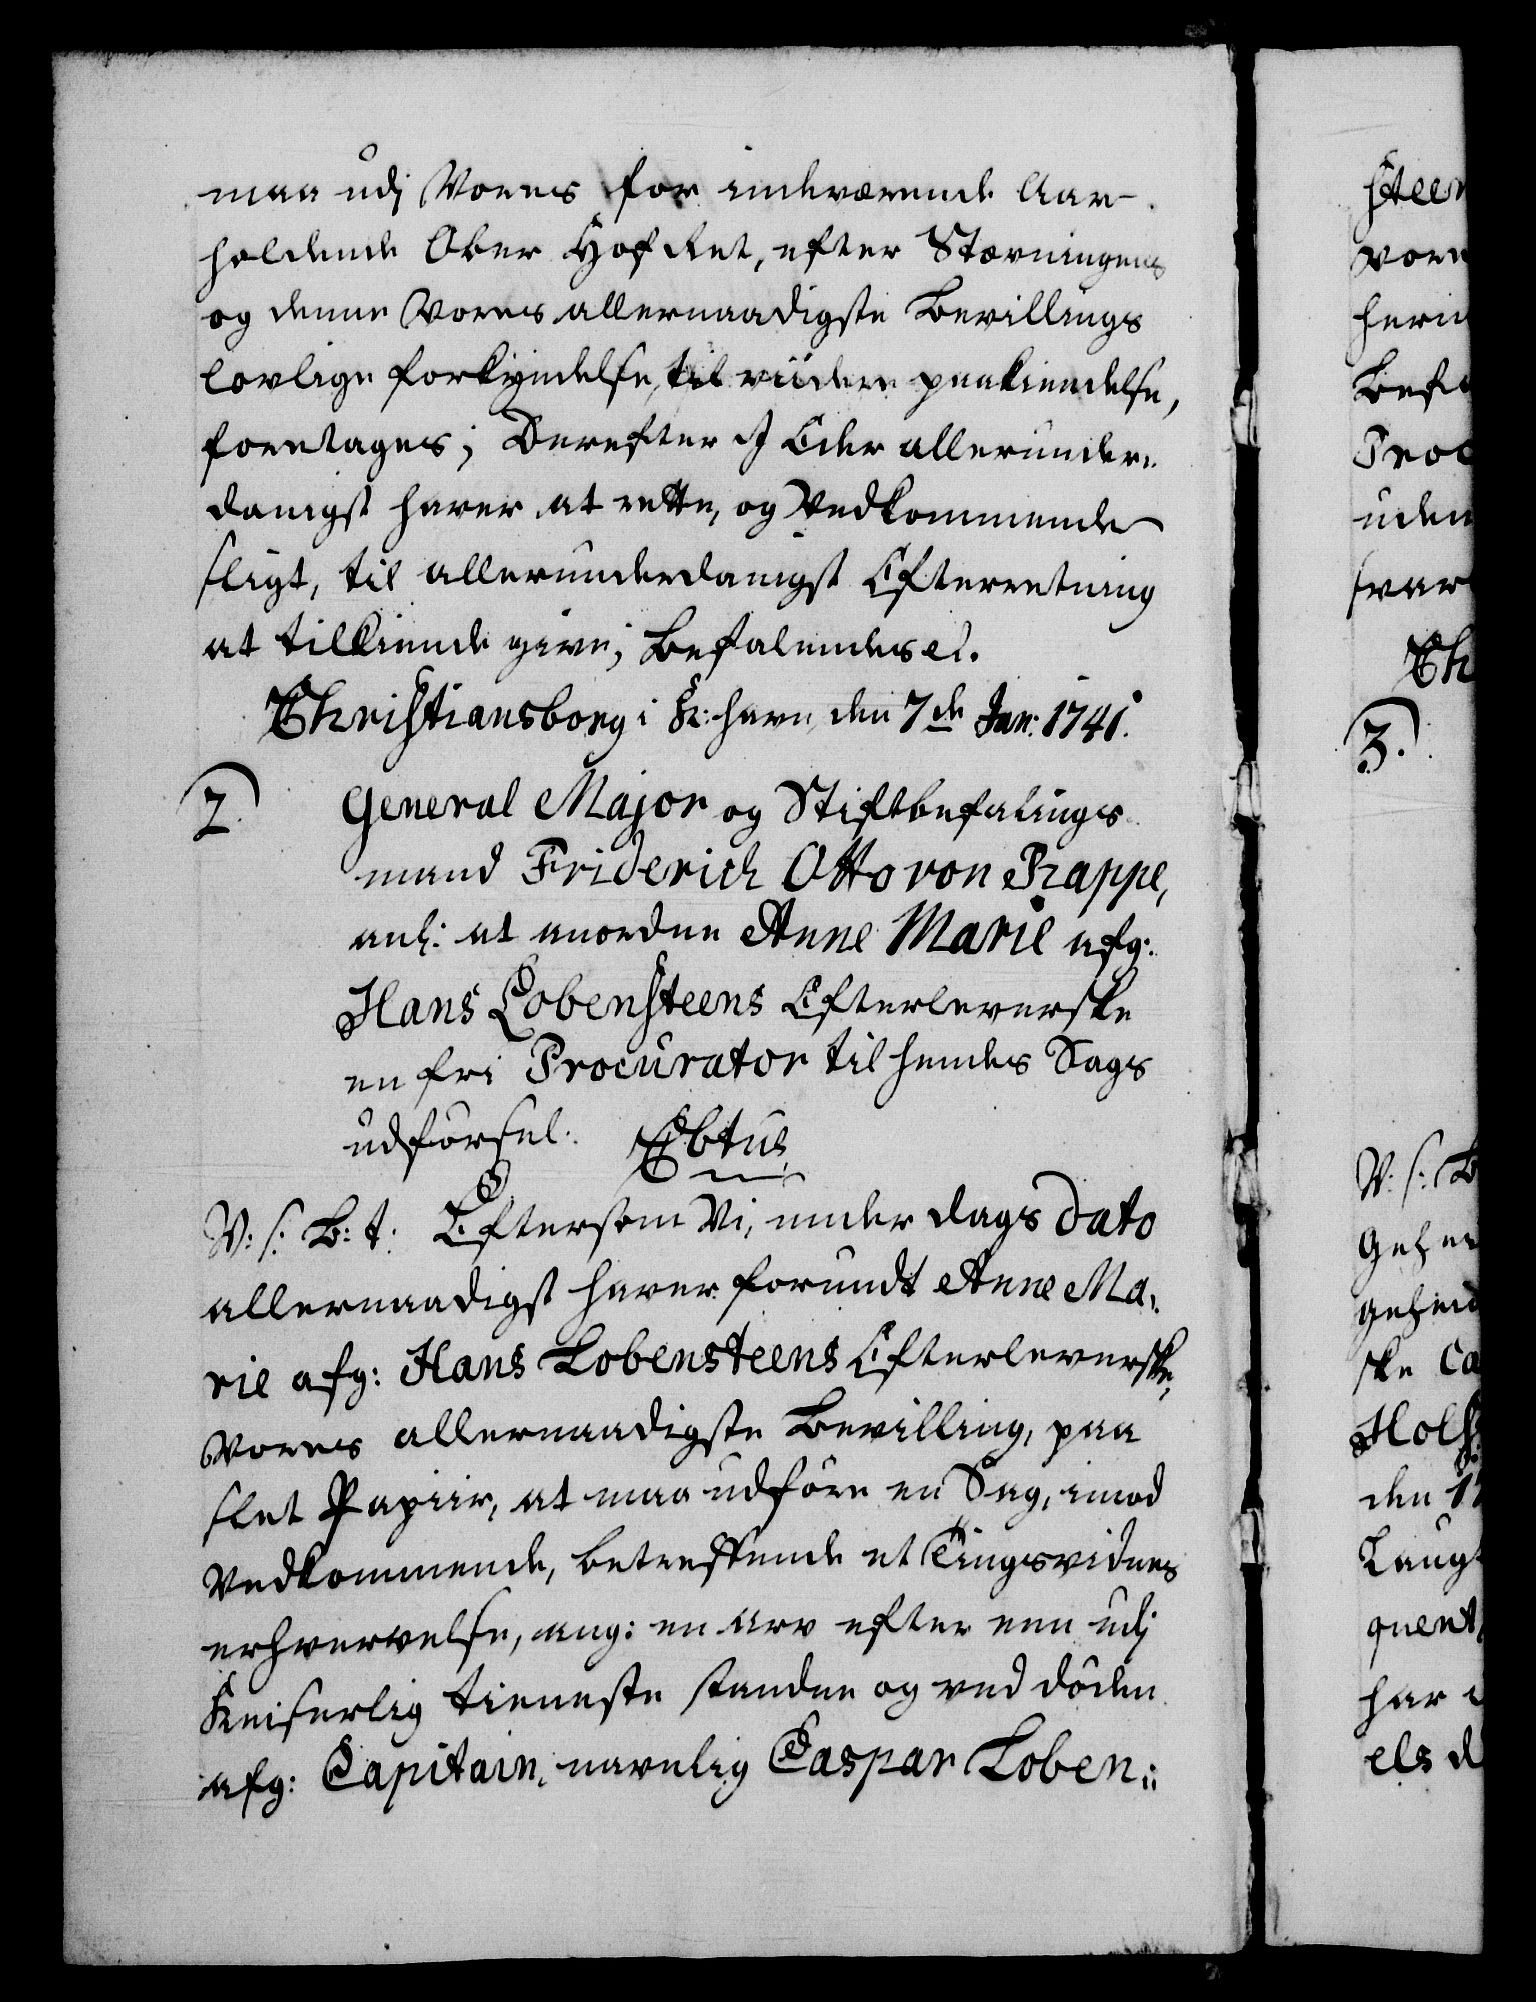 maa udj Vores for indeværende Aar
holdende Ober Hof Ret, efter Stævningens
og denne Vores allernaadigste Bevillings
lovlige forkyndelse, til viidere paakiendelse,
foretages; Derefter I Eder allerunder-
danigst haver at rette, og Vedkommende
sligt, til allerunderdanigst Efterretning
at tilkiende give; Befalendes etc.
Christiansborg i Ki: havn, den 7de Jan: 1741.
2.
General Major og Stiftbefalings
mand Friderich Otto von Rappe,
anl: at anordne Anne Marie afg:
Hans Lobensteens Efterleverske
en fri Procurator til hendes Sags
udførsel.
V: s: B: t: Eftersom Vi, under dags Dato
allernaadigst haver forundt Anne Ma-
rie afg: Hans Lobensteens Efterleverske,
Vores allernaadigste Bevilling, paa
slet Papiir, at maa udføre en Sag, imod
Vedkommende, betreffende et Tingsvidnes
erhvervelse, ang: en Arv efter een udj
Keiserlig tieneste standen og ved døden
afg: Capitain, navnlig Caspar Loben-
steen
Vore
3.
V: s: B
ske Ca
Hols
den 1
Laug
quent
har
els d